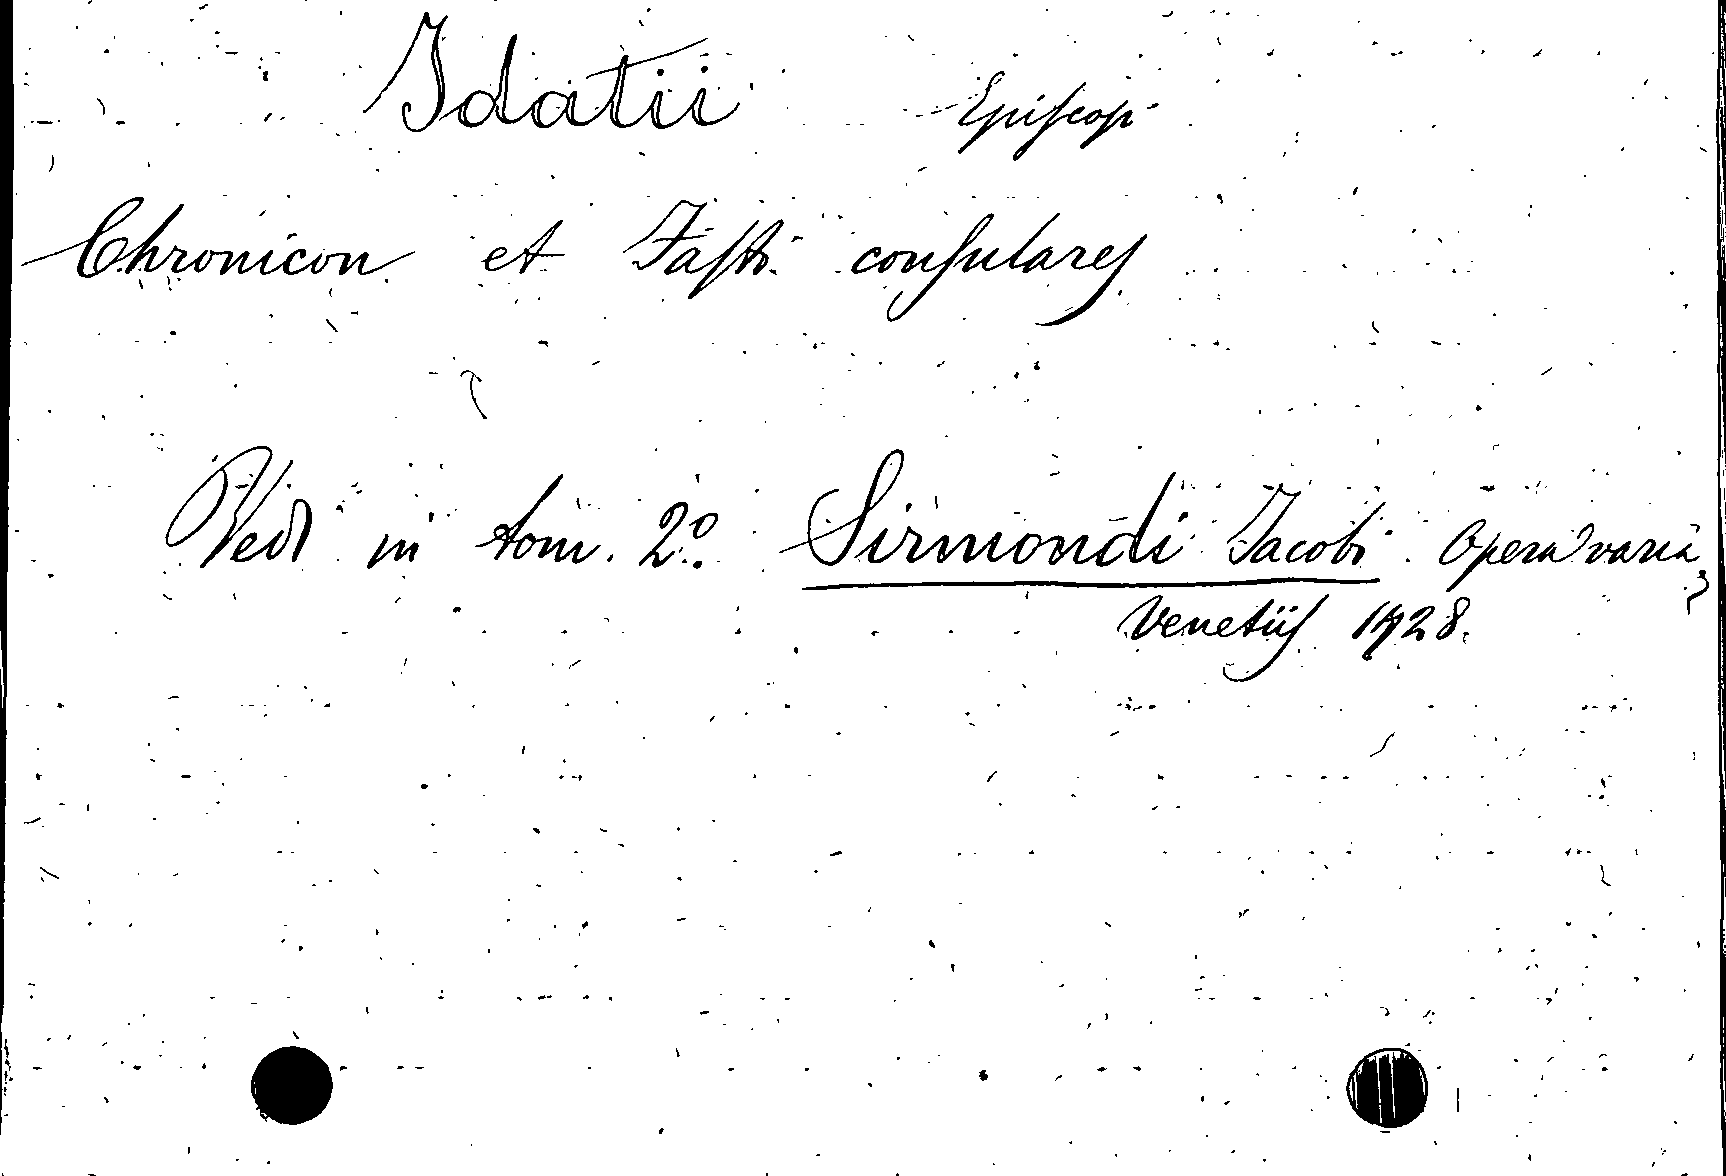 Idatii Episcopi
Chronicon et Fasti consulares
Vedi in tom. 2º. Sirmondi Jacobi Opera varia,
Venetiis 1728.